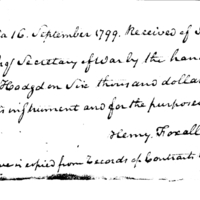 a 16. September 1799. Received of
of Secretary of war by the han
Hodgdon Six thousand dollar
is instrument and for the purpose
Henry Foxall
ve is copied from Records of Contracts